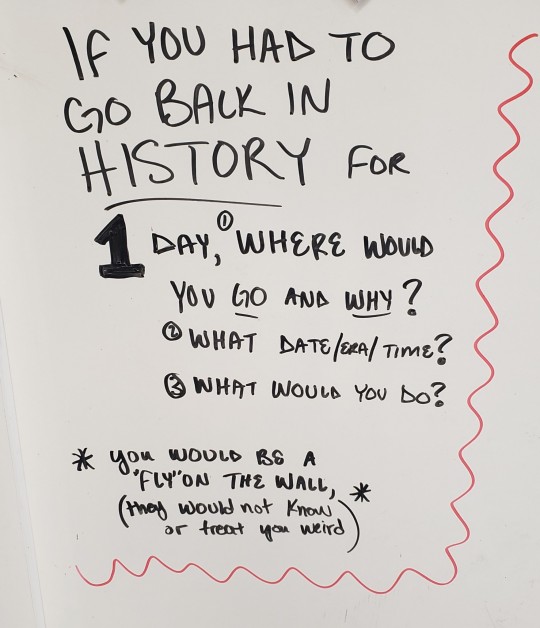 IF YOU HAD TO
GO BACK IN
HISTORY FOR
1 DAY, ① WHERE WOULD
YOU GO AND WHY?
② WHAT DATE/ERA/TIME?
③ WHAT WOULD YOU DO?
* you WOULD BE A
"FLY" ON THE WALL, *
(they would not know
or treat you weird)